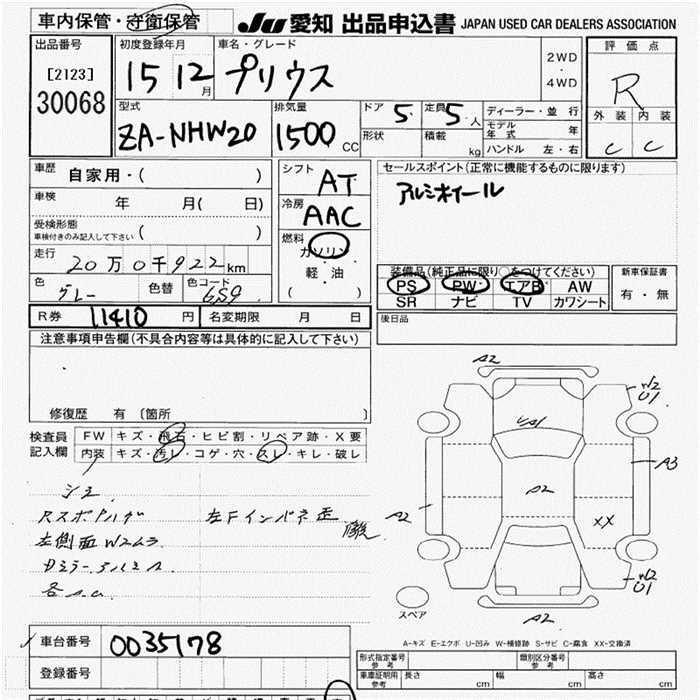 車内保管・守衛保管
JU 愛知 出品申込書 JAPAN USED CAR DEALERS ASSOCIATION
出品番号
[2123]
30068
初度登録年月
15 12 月
車名・グレード
プリウス
2WD
・
4WD
評価点
R
外装 内装
C C
型式
ZA-NHW20
排気量
1500 CC
ドア 5
定員 5 人
形状
積載 kg
ディーラー・並行
モデル年式 年
ハンドル 左・右
車歴 自家用・( )
車検 年 月( 日)
受検形態
車検付きのみ記入して下さい ( )
走行 20万0千922km
色 グレー 色替 色コード 6S9
シフト AT
冷房 AAC
燃料
ガソリン
軽・油
( )
セールスポイント(正常に機能するものに限ります)
アルミホイール
装備品(純正品に限り○をつけてください)
PS PW エアB AW
SR ナビ TV カワシート
新車保証書
有・無
後日品
R券 11410 円 名変期限 月 日
注意事項申告欄(不具合内容等は具体的に記入して下さい)
修復歴 有 〔箇所 〕
検査員記入欄
FW キズ・飛石・ヒビ割・リペア跡・X要
内装 キズ・汚レ・コゲ・穴・スレ・キレ・破レ
左側面W2ムラ
A2
W2
U1
A3
A2
A2
XX
W2
U1
A2
スペア
A-キズ E-エクボ U-凹み W-補修跡 S-サビ C-腐食 XX-交換済
車台番号 0035178
登録番号
形式指定番号 参考
類別区分番号 参考
車庫証明用 参考 長さ cm 幅 cm 高さ cm